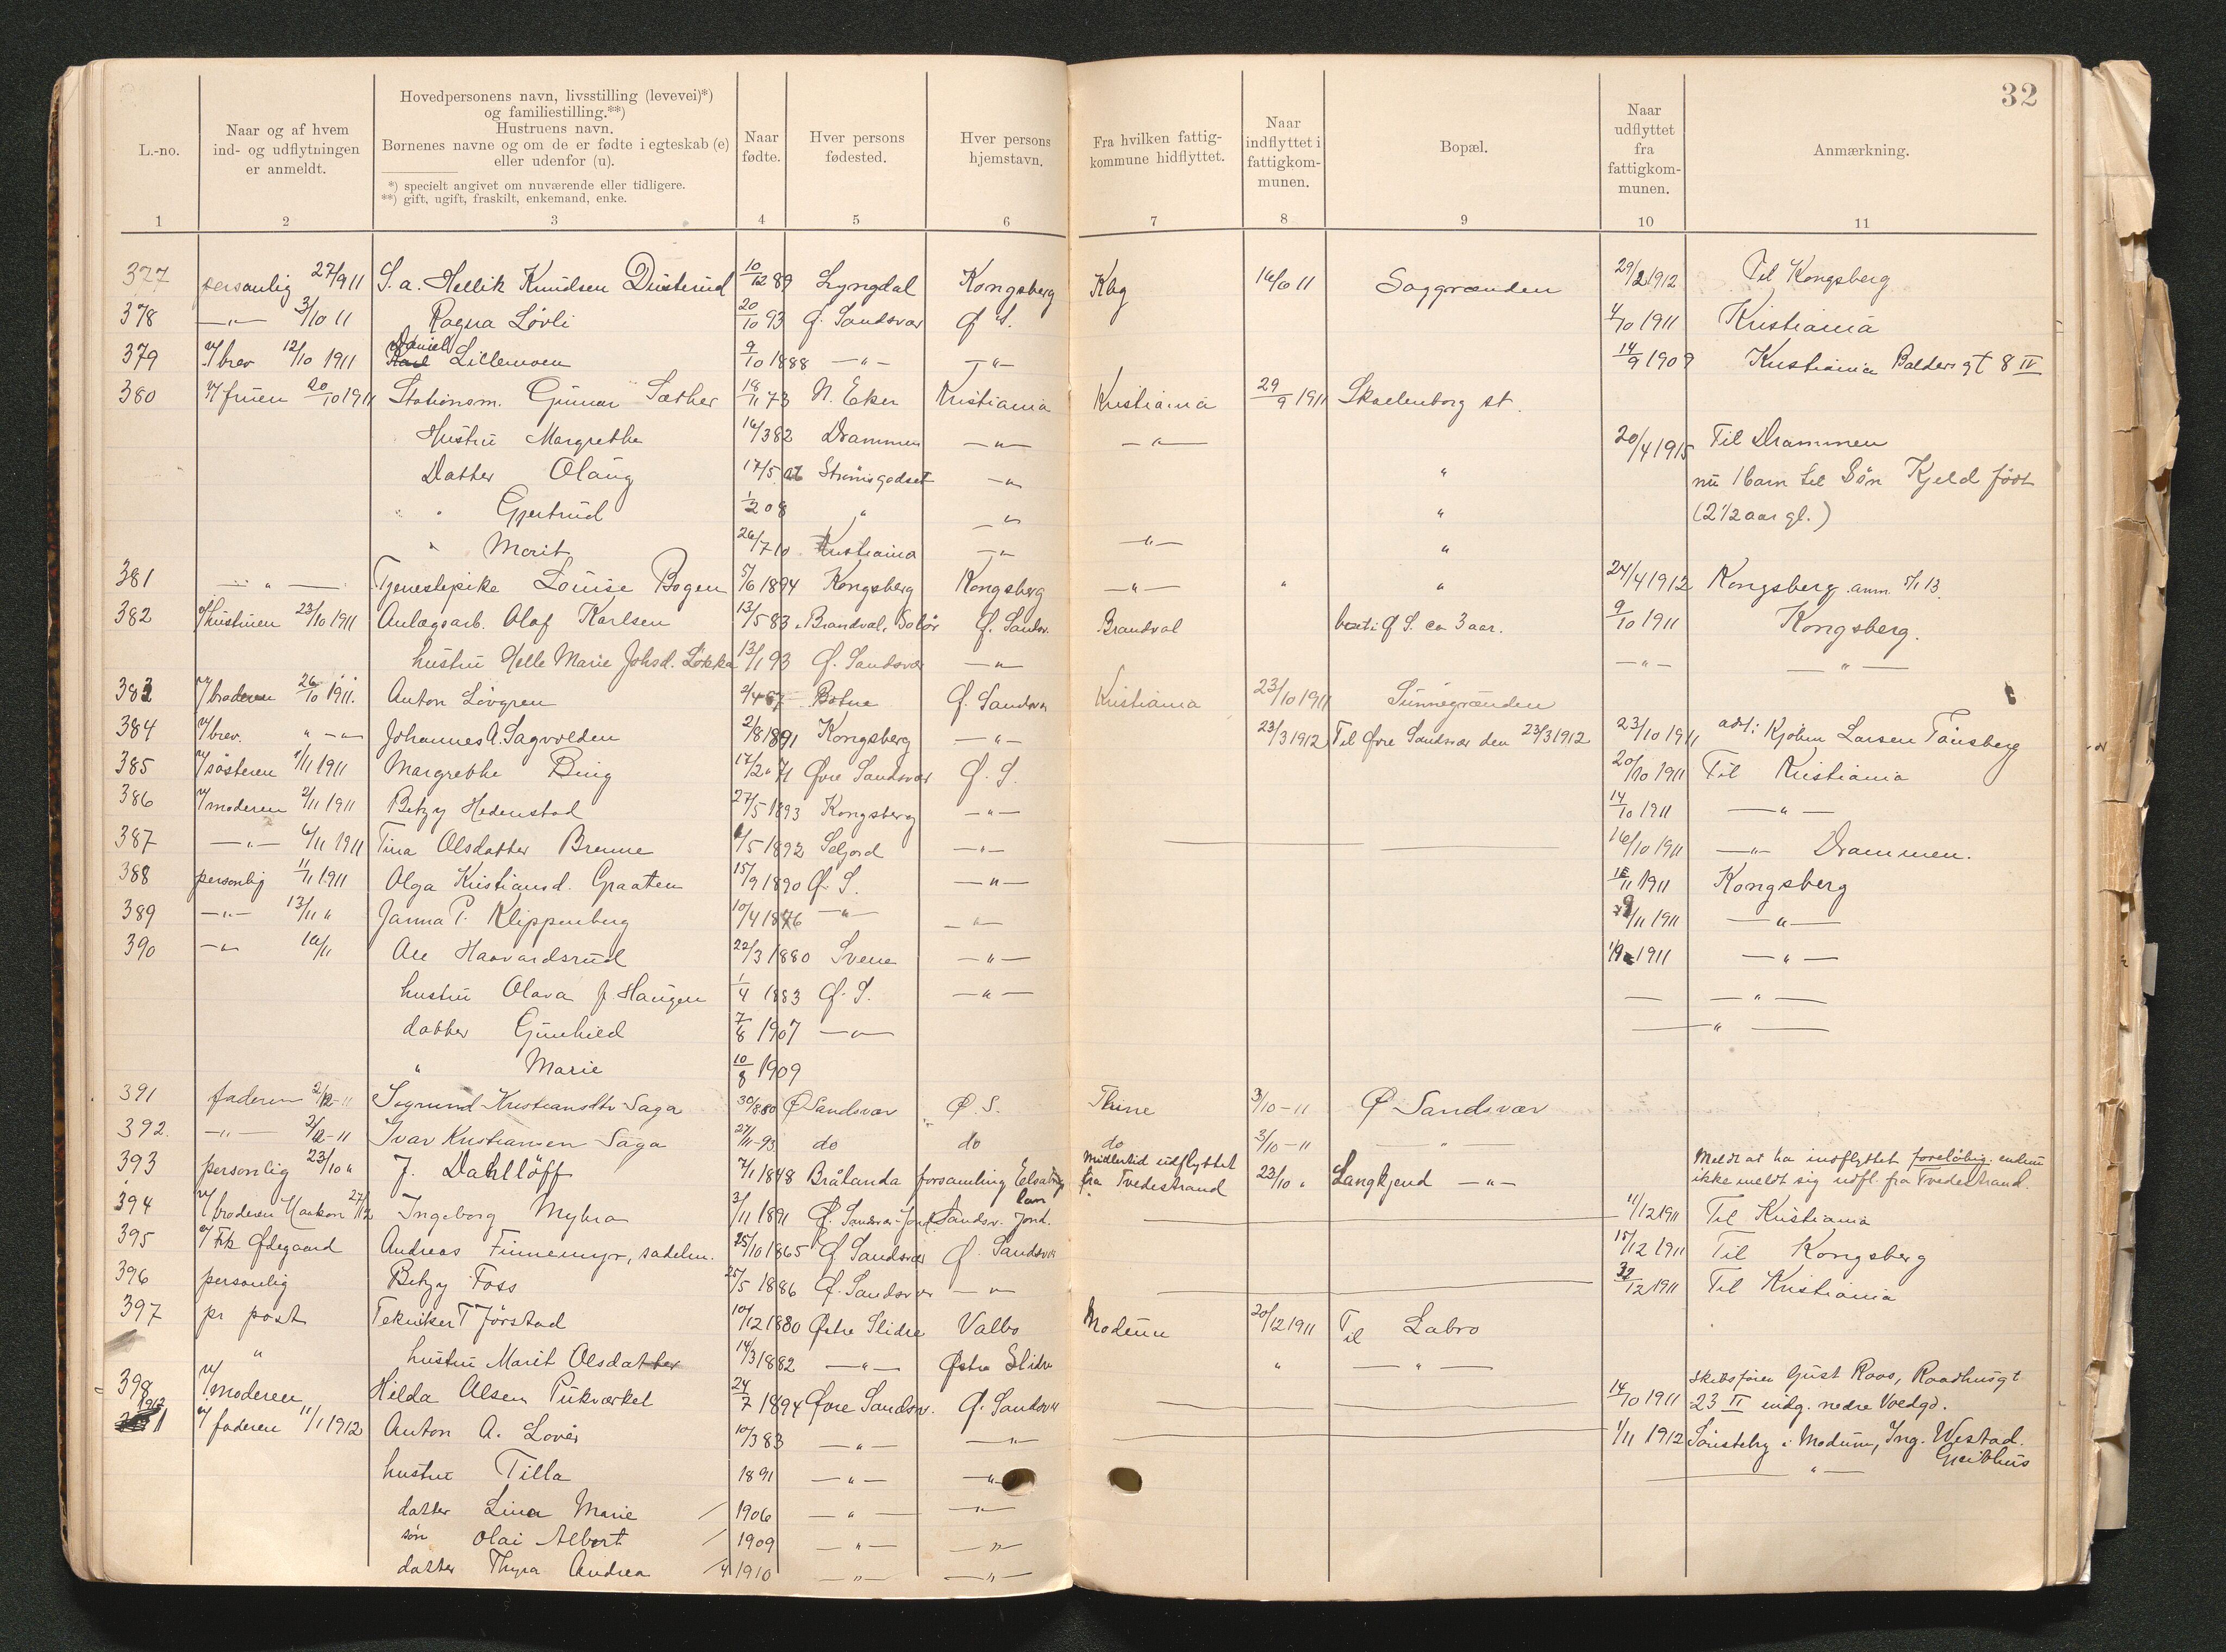 32
L.-no.
Naar og af hvem ind- og udflytningen er anmeldt.
Hovedpersonens navn, livsstilling (levevei)*) og familiestilling.**)
Hustruens navn.
Børnenes navne og om de er fødte i egteskab (e) eller udenfor (u).
*) specielt angivet om nuværende eller tidligere.
**) gift, ugift, fraskilt, enkemand, enke.
Naar fødte.
Hver persons fødested.
Hver persons hjemstavn.
Fra hvilken fattigkommune hidflyttet.
Naar indflyttet i fattigkommunen.
Bopæl.
Naar udflyttet fra fattigkommunen.
Anmærkning.
1 2 3 4 5 6 7 8 9 10 11
377 personlig 27/9 11 S. a. Hellik Knudsen 10/12 89 Lyngdal Kongsberg Kbg 11 Saggrænden 29/2 1912 Til Kongsberg
378 —"— 3/10 11 Ragna Løvli 20/10 93 Ø. Sandsvær Ø S. 4/10 1911 Kristiania
379 v/ brev 12/10 1911 Daniel Lillemoen 9/10 1888 —"— —"— 14/9 1909 Kristiania Balders gt 8 IV
380 v/ fruen 20/10 1911 Stationsm. Gunnar Sæther 18/11 73 N. Eker Kristiania Kristiania 29/9 1911 Skollenborg st.
Hustru Margrethe 16/3 82 Drammen —"— —"— 20/4 1915 Til Drammen
Datter Olaug 17/5 06 Strømsgodset —"— " nu 1 barn til Søn Kjeld født
" " Gjertrud 1/2 08 " —"— " (2 1/2 aar gl.)
" Marit 26/7 10 Kristiania —"— —"— "
381 —"— Tjenestepike Louise Bogen 5/6 1894 Kongsberg Kongsberg —"— " " 24/4 1912 Kongsberg anm. 13.
382 v/ hustruen 23/10 1911 Anlægsarb. Olaf Karlsen 13/5 83 Brandval, Solør Ø. Sandsv. Brandval boet i Ø S. ca 3 aar. 9/10 1911 Kongsberg.
hustru Helle Marie Johsd. Løkka 13/1 93 Ø. Sandsvær —"— —"— —"—
383 v/ broderen 26/10 1911. Anton Løvgren 2/4 67 Botne Ø. Sandsvær Kristiania 23/10 1911 Sunnegrænden
384 v/ brev. " —"— Johannes A. Sagvolden 2/8 1891 Kongsberg —"— 23/3 1912 Til Øvre Sandsvær den 23/3 1912 23/10 1911 adr: Kjøbm Larsen Tønsberg
385 v/ søsteren 1/11 1911 Margrethe Bing 17/2 71 Øvre Sandsvær Ø. S. 20/10 1911 Til Kristiania
386 v/ moderen 2/11 1911 Betzy Hedenstad 27/5 1893 Kongsberg —"— 14/10 1911 —"—
387 —"— 6/11 1911 Tina Olsdatter Brenne 6/5 1892 Seljord —"— 16/10 1911 —"— Drammen.
388 personlig 11/11 1911 Olga Kristiansd. Graaten 15/9 1890 Ø. S. —"— /11 1911 Kongsberg
389 —"— 13/11 " Janna P. Klippenberg 10/4 1876 —"— —"— /11 1911 —"—
390 —"— 16/11 Ole Haavardsrud 22/3 1880 Svene —"— 1911 —"—
hustru Olava J. Haugen 1/4 1883 Ø. S. —"— — —"—
datter Gunhild 7/8 1907 —"— —"—
" Marie 10/8 1909
391 faderen 2/12-11 Sigrund Kristiansdtr Saga 30/8 80 Ø Sandsvær Ø. S. Thine 3/10-11 Ø Sandsvær
392. —"— 2/12-11 Ivar Kristiansen Saga 27/11-93 do do do 3/10-11 —"—
393 personlig 23/10 " J. Dahllöff 7/1 1848 Brålanda forsamling Elfsborgs lan Midlertid udflyttet fra Tvedestrand 23/10 " Langkjend —"— Meldt at ha indflyttet foreløbig. endnu ikke meldt sig udfl. fra Tvedestrand.
394 v/ broderen Haakon 27/12 Ingeborg Myhra 3/11 1891 Ø. Sandsvær-Jond. Sandsv. Jond. 11/12 1911 Til Kristiania
395 v/ Ødegaard Andreas Finnemyr, sadelm. 25/10 1865 Ø Sandsvær Ø. Sandsvær 15/12 1911 Til Kongsberg
396 personlig Betzy Foss 25/5 1886 Ø. Sandsvær —"— /12 1911 Til Kristiania
397 pr post Tekniker T Jörstad 10/12 1880 Østre Slidre Valbo Modum 20/12 1911 Til Labro
" hustru Marit Olsdatter 14/3 1882 —"— Østre Slidre " —"—
398 v/ moderen Hilda Olsen Pukverket 24/7 1894 Øvre Sandsv. Ø. Sandsvær 14/10 1911 skibsfører Gust Roos, Raadhusgt 23 II indg. nedre Voldgd.
1912 1 v/ faderen 11/1 1912 Anton A. Lover 10/3 83 —"— —"— 1/11 1912 i Modum, Ing. Westad. Geithus
hustru Tilla 1891 —"— —"— —"—
datter Lina Marie 1906 —"— —"—
søn Olai Albert 1909 —"— —"—
datter Thyra Andrea 1910 —"— —"—